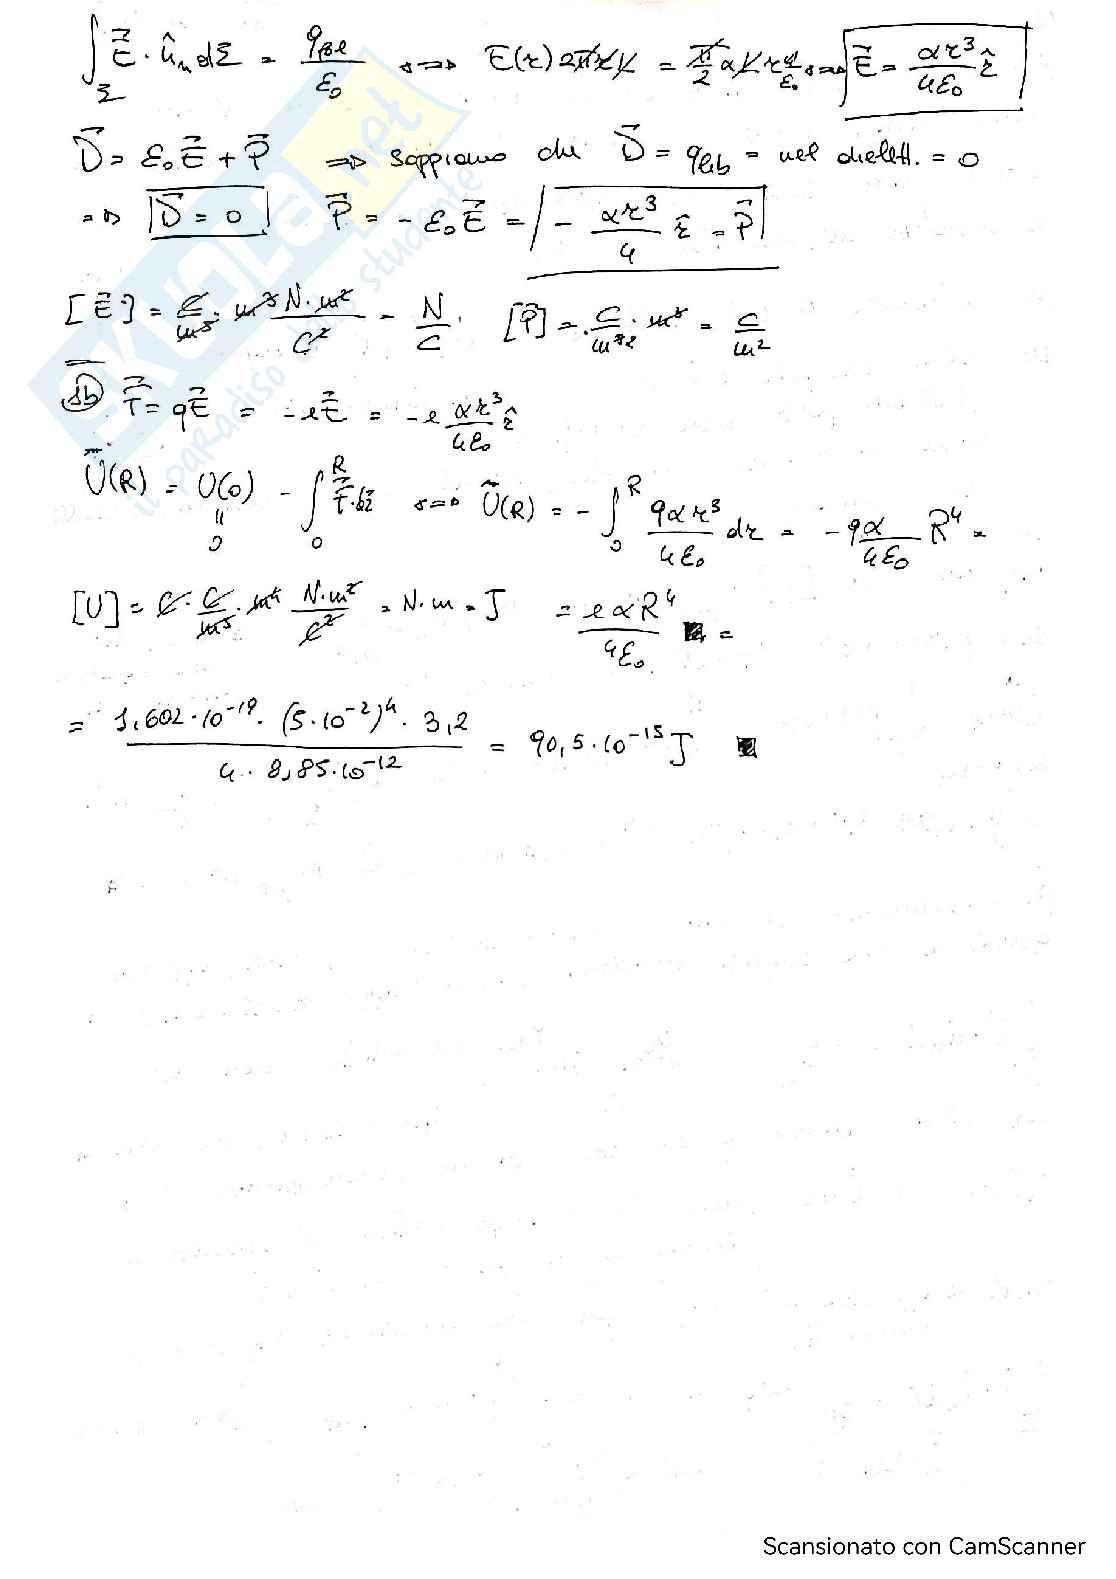 ∫_Σ E⃗ · û_n dΣ = q_pol/ε₀ <=> E(r) 2πrl = π/2 α l r⁴/ε₀ <=> E⃗ = αr³/4ε₀ r̂
D⃗ = ε₀E⃗ + P⃗ => Sappiamo che D⃗ = q_lib = nel dielett. = 0
=> D⃗ = 0 P⃗ = - ε₀E⃗ = - αr³/4 r̂ = P⃗
[E⃗] = C/m⁵ · m³ N·m²/C² = N/C. [P] = C/m⁵ · m³ = C/m²
1b) F⃗ = qE⃗ = -eE⃗ = -e αr³/4ε₀ r̂
U(R) = U(0) - ∫₀^R F⃗·dr⃗ <=> U(R) = - ∫₀^R qαr³/4ε₀ dr = -qα/4ε₀ R⁴ =
0
[U] = C · C/m⁵ · m⁴ N·m²/C² = N·m = J = eαR⁴/4ε₀ =
= 1,602·10⁻¹⁹ · (5·10⁻²)⁴ · 3,2 / 4 · 8,85·10⁻¹² = 90,5·10⁻¹⁵ J
SKUOLA.net
il paradiso dello studente
Scansionato con CamScanner